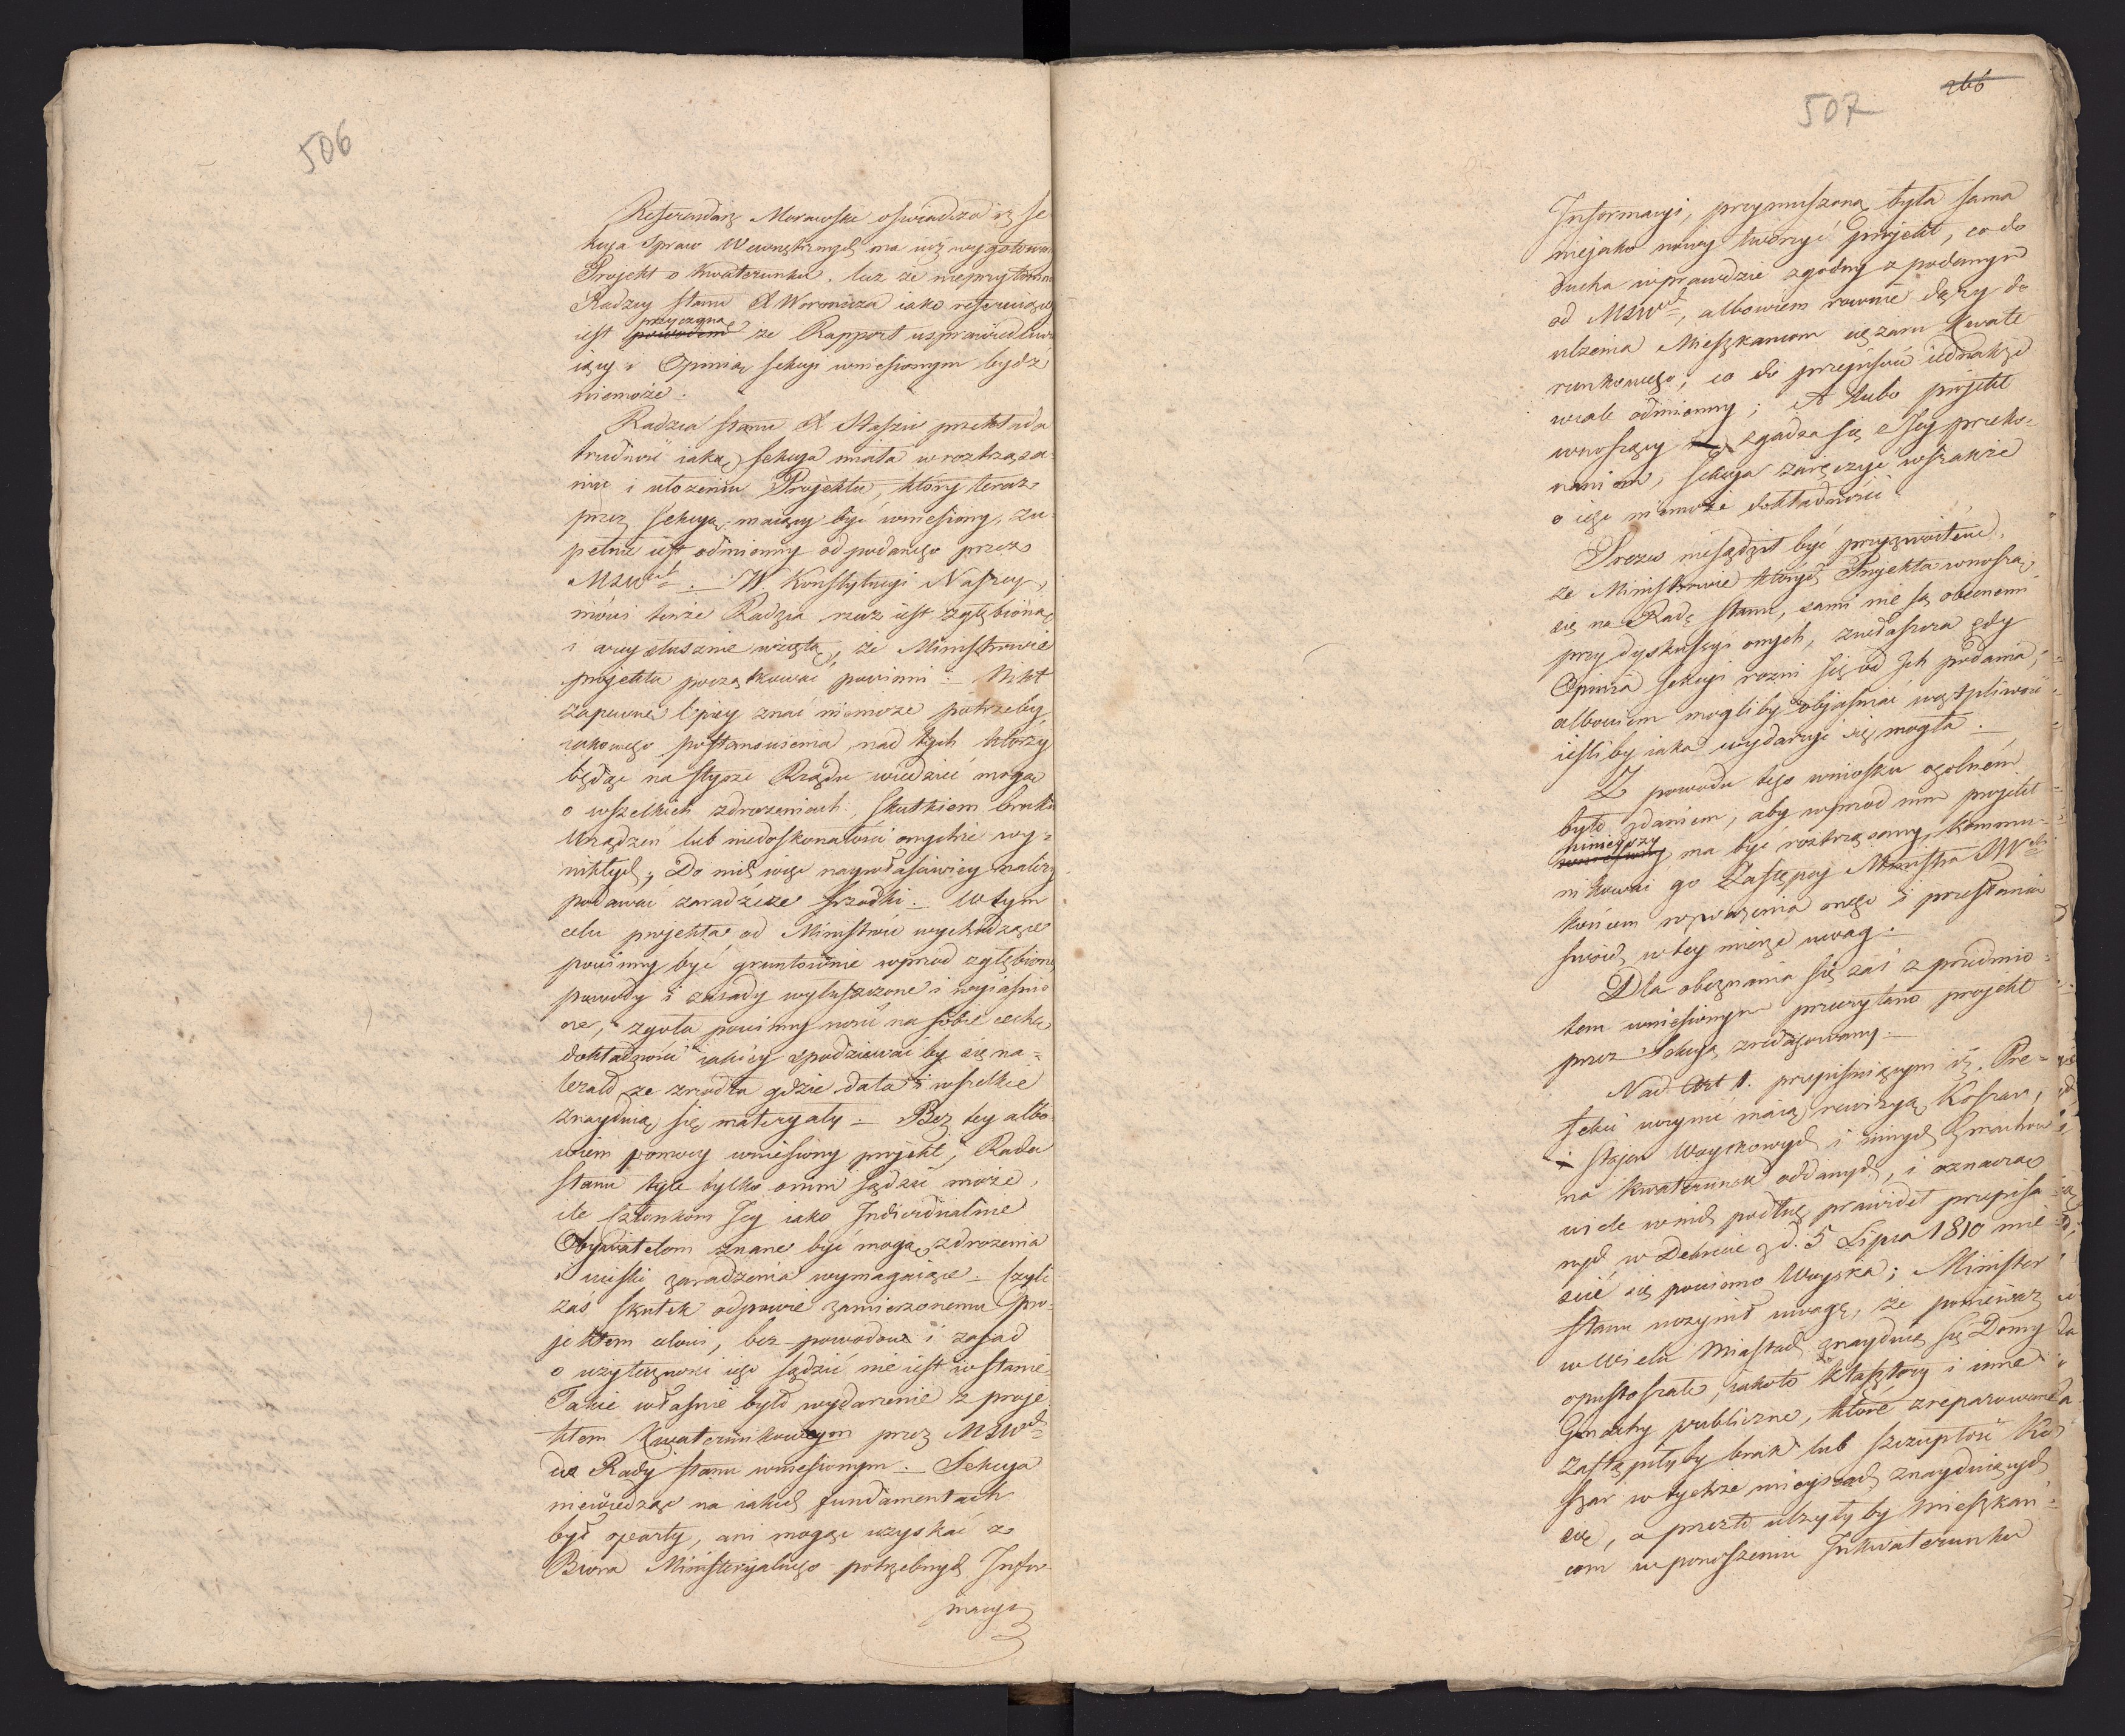 506
Referendarz Morawski oświadcza iż Se
kcya Spraw Wewnętrznych ma iuż wygotowan
Projekt o kwaterunku, lecz że nieprzytomn
Radzcy Stanu X Woronicza iako referuiącego
przyczyną
iest powodem że Rapport usprawiedliwia
iący i Opinią Sekcyi wniesionym bydź
niemoże.
Radzca Stanu X Staszic przekłada
trudność iaką Sekcya miała w roztrząsa
niu i ułożeniu Projektu, który teraz
przez Sekcyą maiący być wniesiony, zu-
pełnie iest odmienny od podanego przez
MSWch. W Konstytucyi Naszey,
mówi tenże Radzca rzecz iest zgłębioną
i arcy słusznie wziętą, że Ministrowie
projekta początkować powinni. Nikt
zapewne lepiey znać niemoże potrzeby
iakowego postanowienia nad tych którzy
będąc na styrze Rządu wiedzieć mogą
o wszelkich zdrożeniach, skutkiem braku
Urządzeń lub niedoskonałości onychże wy-
nikłych; Do nich więc naywłaściwiey należy
podawać zaradźcze srzodki. W tym
celu projekta od Ministrów wychodzące
powinny być gruntownie wprzod zgłębione
powody i zasady wyłuszczone i wyiaśnio
ne, zgoła powinny nosić na sobie cechę
dokładności iakiey spodziewać by się na-
leżało ze zrzodła gdzie data i wszelkie
znayduią się materyały – Bez tey albo
wiem pomocy wniesiony projekt, Rada
Stanu tyle tylko onim sądzić może,
ile Członkom Jey iako Individualnie
Obywatelom znane być mogą zdrożenia
i uciski zaradzenia wymagaiące. Czyli
zaś skutek odpowie zamierzonemu pro-
jektem celowi, bez powodow i zasad
o użyteczności iego sądzić nie iest w stanie
Takie właśnie było wydarzenie z proje
ktem Kwaterunkowym przez MSWch
do Rady Stanu wniesionym. Sekcya
niewiedząc na iakich fundamentach
był oparty, ani mogąc uzyskać z
Biora Ministeryalnego potrzebnych Infor-
macyi
266
507
Informacyi, przymuszoną była sama
niejako nowy tworzyć projekt, co do
ducha wprawdzie zgodny z podanym
od MSWch, albowiem rownie dąży do
ulżenia Mieszkańcom ciężaru kwate
runkowego; co do przepisów iednakże
wcale odmienny; A lubo projekt
wnoszący zgadza się Jey przeko-
naniem, Sekcya zaręczyć wszakże
o iego niemoże dokładności.
Prezes niesądził być przyzwoitem,
że Ministrowie których Projekta wnoszą
się na Radę Stanu, sami nie są obecnemi
przy dyskussyi onych, zwłaszcza gdy
Opinia Sekcyi rożni się od Ich podania,
albowiem mogliby objaśniać wątpliwość
ieśliby iaka wydarzyć się mogła.
Z powodu tego wniosku ogolnem
było zdaniem, aby wprzod nim projekt
ninieyszy
ma być roztrząsany, kommu-
nikować go Zastępcy Ministra SWch
końcem rozważenia onego i przesłania
swoich w tey mierze uwag.
Dla obeznania się zaś z przedmio-
tem wniesionym przeczytano projekt
przez Sekcyą zredagowany.
Nad Art 1. przepisuiącym iż, Pre-
fekci uczynić maią rewizyą Koszar,
i Stajen Woyskowych i innych Gmachow
na kwaterunek oddanych, i oznaczą
wiele w nich podług prawideł przepisa
nych w Dekrecie z d. 5 Lipca 1810 mie
ścić się powinno Woyska; Minister
Stanu uczynił uwagę, że ponieważ
w wielu Miastach znayduią się Domy
opustoszałe, iakoto Klasztory i inne
Gmachy publiczne, które zreparowane
zastąpiłyby brak lub szczupłość Ko
szar w tychże mieyscach znayduiących
się, a przeto ulżyłyby Mieszkań-
com w ponoszeniu Inkwaterunku